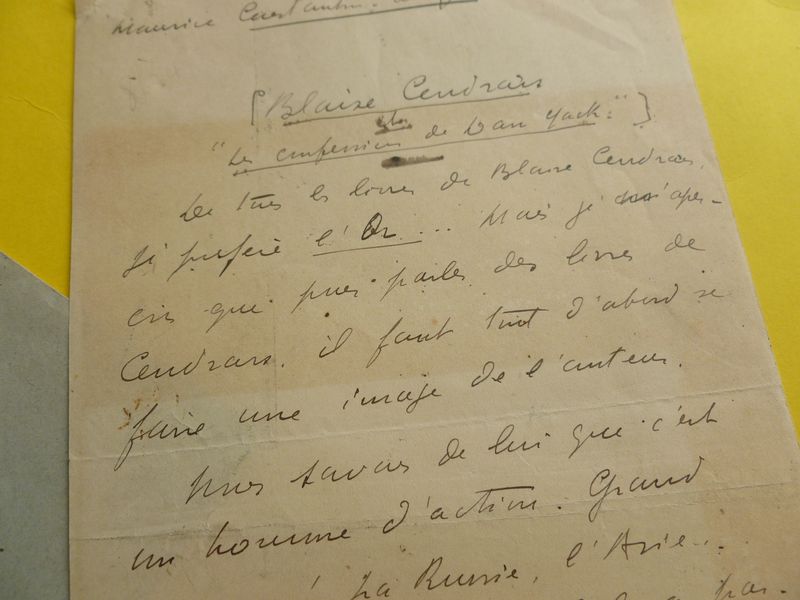 Maurice Constantin
[Blaise Cendrars
"Les confessions de Dan Yack."]
De tous les livres de Blaise Cendrars,
je préfère l'Or... Mais je m'aper-
çois que pour parler des livres de
Cendrars, il faut tout d'abord se
faire une image de l'auteur.
Nous savons de lui que c'est
un homme d'action. Grand
la Russie, l'Asie...